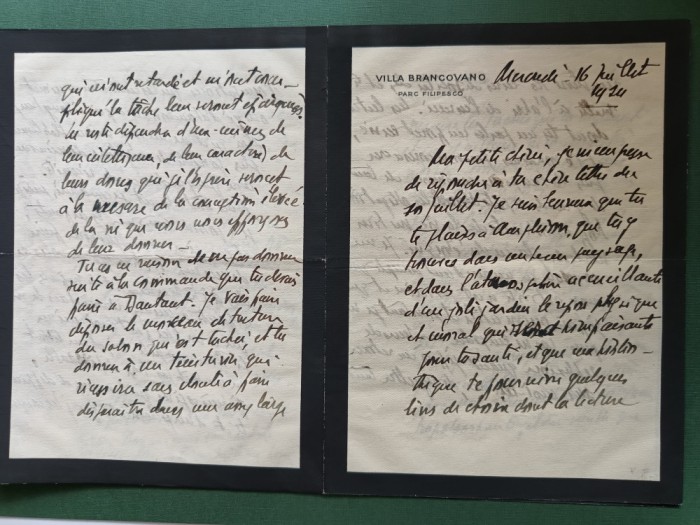 qui m'ont retardé et m'ont com-
pliqué la tâche leur seront épargnées.
du reste dépendra d'eux-mêmes de
leur intelligence, de leur caractère, de
leurs dons qui j'espère seront
à la mesure de la conception élevée
de la vie que nous nous efforçons
de leur donner —
Tu as eu raison de ne pas donner
suite à la commande que tu devais
faire à Je vais faire
déposer le morceau de tenture
du salon qui est taché, et le
donner à un teinturier qui
réussira sans doute à faire
disparaître dans une assez large
VILLA BRANCOVANO
PARC FILIPESCO
16 Juillet
1924
Ma petite chérie, je m'empresse
de répondre à ta chère lettre du
10 Juillet. Je suis heureux que tu
te plaises à Amphion, que tu y
trouves dans un beau paysage,
et dans l'atmosphère accueillante
d'un joli jardin le repos physique
et moral qui bienfaisante
pour ta santé, et que ma biblio-
thèque te fournisse quelques
livres de choix dont la lecture